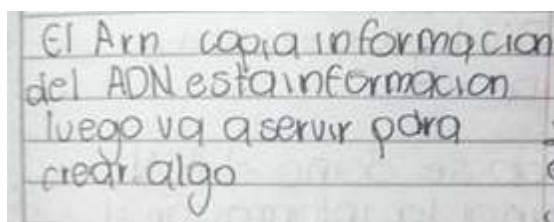 El Arn copia informacion
del ADN esta informacion
luego va a servir para
crear algo